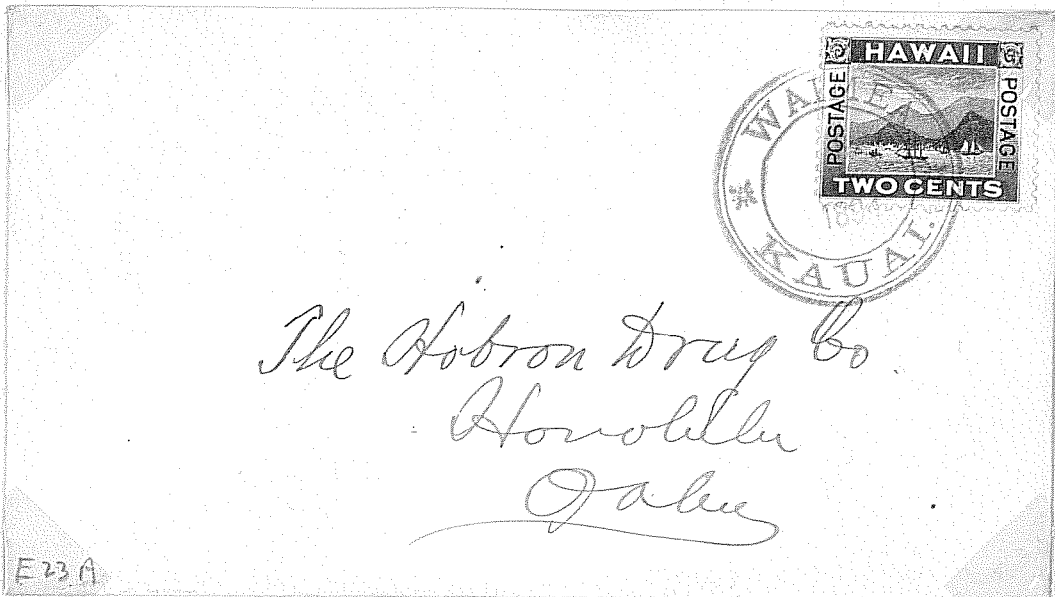 HAWAII
POSTAGE
POSTAGE
TWO CENTS
KAUAI.
The Hobron Drug Co.
Honolulu
Oahu
E 23 A